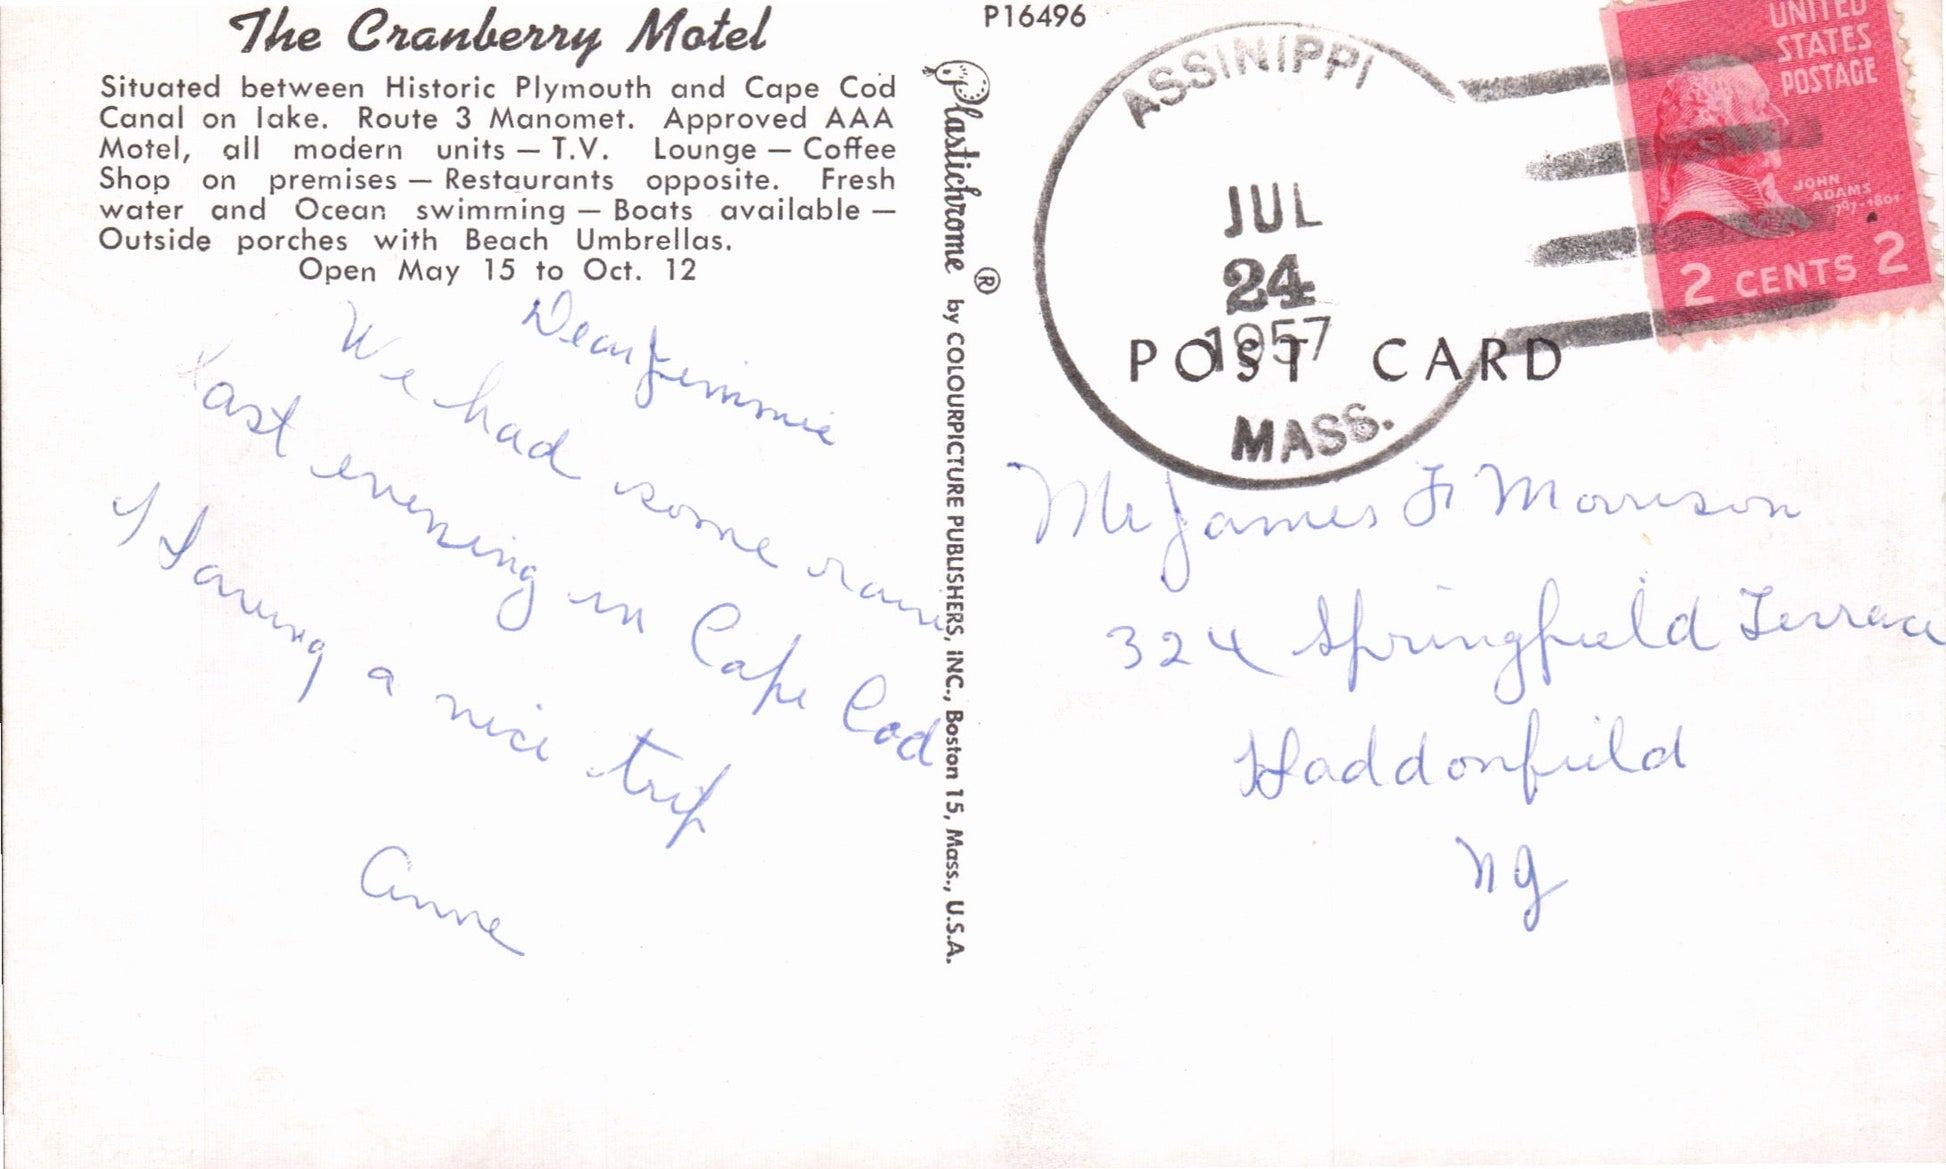 The Cranberry Motel
Situated between Historic Plymouth and Cape Cod
Canal on lake. Route 3 Manomet. Approved AAA
Motel, all modern units — T.V. Lounge — Coffee
Shop on premises — Restaurants opposite. Fresh
water and Ocean swimming — Boats available —
Outside porches with Beach Umbrellas.
Open May 15 to Oct. 12
Dear Jimmie
We had some rain
last evening in Cape Cod
Having a nice trip
Anne
Plastichrome ® by COLOURPICTURE PUBLISHERS, INC., Boston 15, Mass., U.S.A.
P16496
ASSINIPPI
JUL
24
1957
MASS.
UNITED
STATES
POSTAGE
JOHN
ADAMS
1797-1801
2 CENTS 2
POST CARD
Mr James F Morrison
324 Springfield Terrace
Haddonfield
NJ